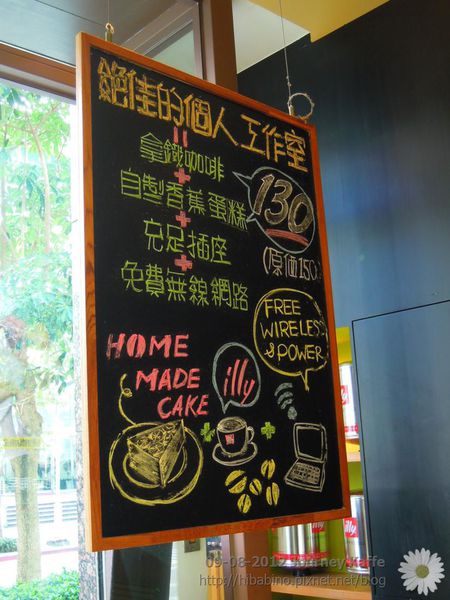 絕佳的個人工作室
=
拿鐵咖啡
+
自製香蕉蛋糕
+
充足插座
+
免費無線網路
130
(原価150)
FREE
WIRELESS
& POWER
HOME
MADE
CAKE
illy
illy
09-08-2012 Journey Kaffe
http://hibabino.pixnet.net/blog